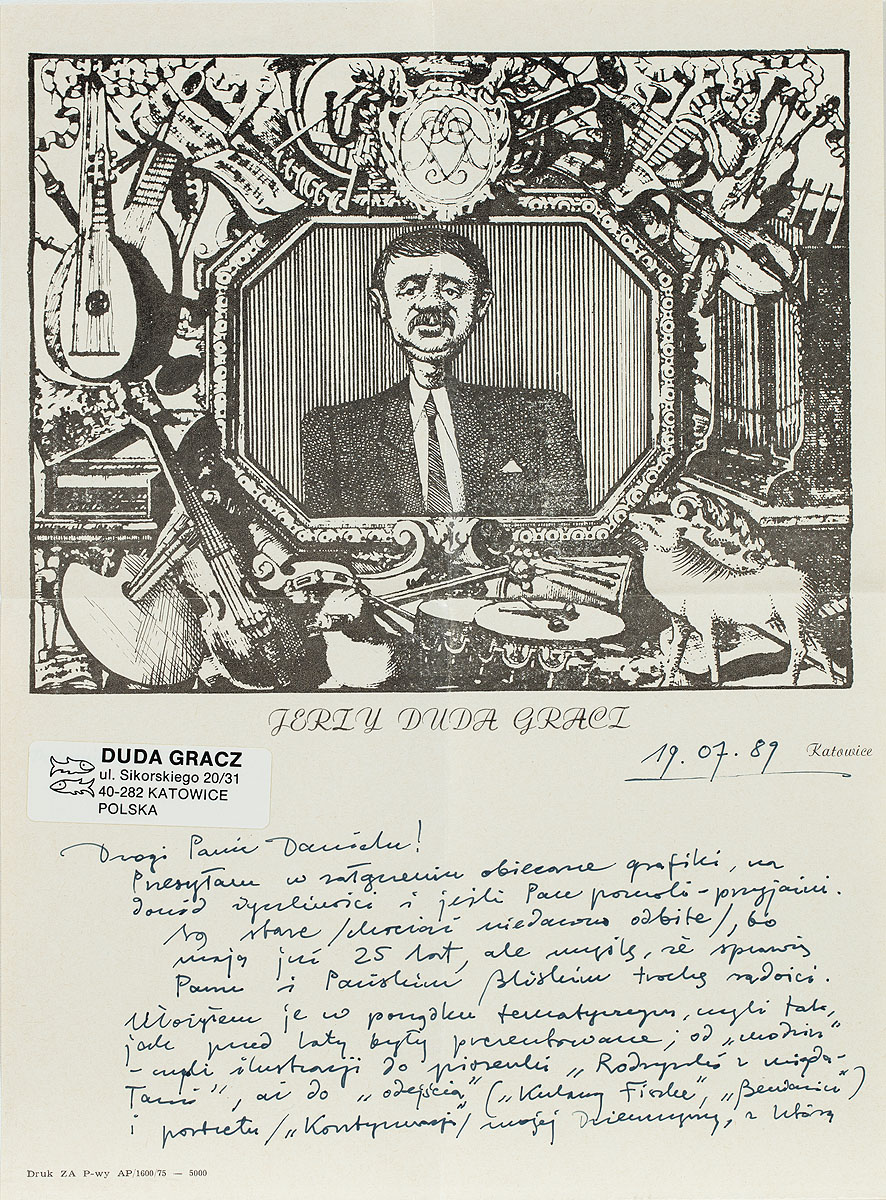 JERZY DUDA GRACZ
19.07.89 Katowice
DUDA GRACZ
ul. Sikorskiego 20/31
40-282 KATOWICE
POLSKA
Drogi Panie Danielu!
Przesyłam w załączeniu obiecane grafiki, na
dowód życzliwości i jeśli Pan pozwoli - przyjaźni.
Są stare /chociaż niedawno odbite/, bo
mają już 25 lat, ale myślę, że sprawią
Panu i Pańskim Bliskim trochę radości.
Ułożyłem je w porządku tematycznym, czyli tak,
jak przed laty były prezentowane; od „
- czyli ilustracji do piosenki „Rodzynki z migda-
łami", aż do „odejścia" („Kulawy Fiszke",
i portretu /„Kontynuacja"/ mojej Dziewczyny, z którą
Druk ZA P-wy AP/1600/75 — 5000